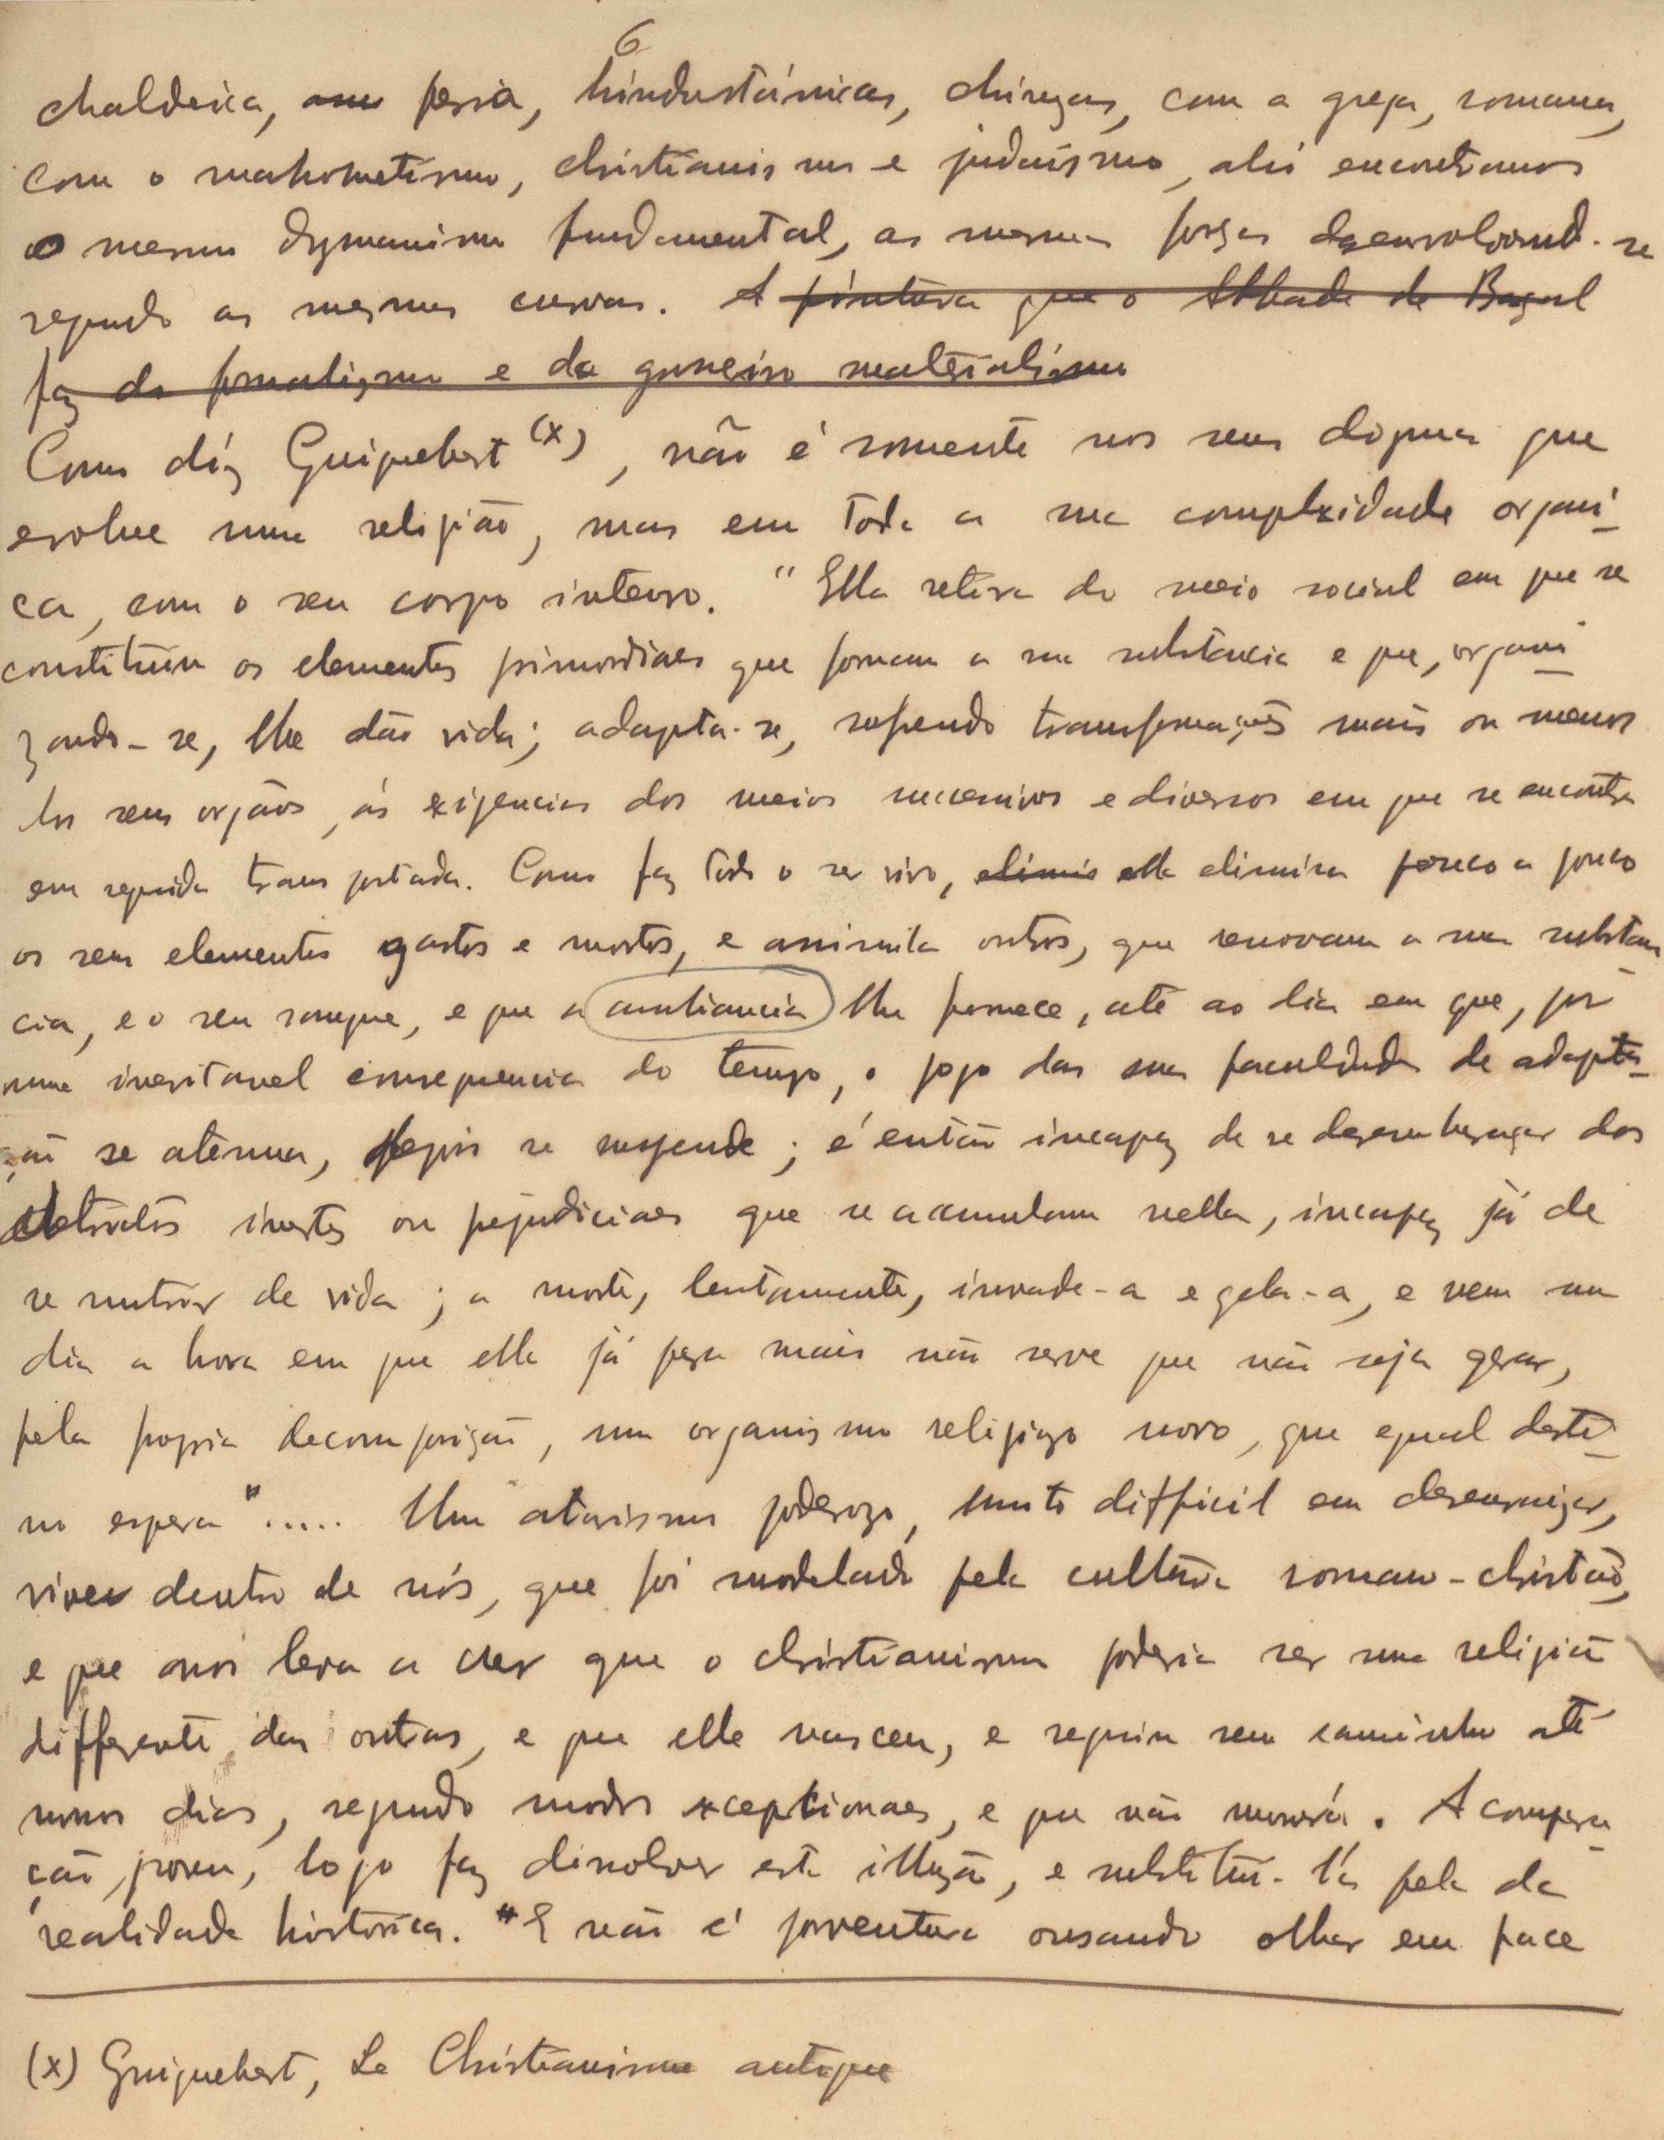 6
chaldeica, persa, hindustánicas, chinezas, com a grega, romana,
com o mahometismo, christianismo e judaísmo, ahi encontramos
o mesmo dynamismo fundamental, as mesmas forças desenvolvend-se
segundo as mesmas curvas. A pintura que o Abbade de Baçal
faz do formalismo e do grosseiro materialismo
Como díz Guiguebert (x), não é somente nos seus dogmas que
evolue uma religião, mas em toda a sua complexidade organi-
ca, com o seu corpo inteiro. "Ella retira do meio social em que se
constituiu os elementos primordiaes que formam a sua substancia e que, organi-
zando-se, lhe dão vida; adapta-se, sofrendo transformações mais ou menos
dos seus orgãos, ás exigencias dos meios successivos e diversos em que se encontra
em seguida transportada. Como faz todo o ser vivo, elimis ella elimina pouco a pouco
os seus elementos gastos e mortos, e assimila outros, que renovam a sua substan-
cia, e o seu sangue, e que a ambiancia lhe fornece, até ao dia em que, por
uma inevitavel consequencia do tempo, o jogo das suas faculdades de adapta-
ção se atenua, depois se suspende; é então incapaz de se desembaraçar dos
detrictos inertes ou prejudiciaes que se acumulam nella, incapaz já de
se nutrir de vida; a morte, lentamente, invade-a e gela-a, e vem um
dia a hora em que ella já para mais não serve que não seja gerar,
pela propria decomposição, um organismo religiozo novo, que egual desti-
no espera"..... Um atavismo poderozo, muito difficil em desenraizar,
vive dentro de nós, que foi modelado pela cultura romano-christão,
e que nos leva a crer que o christianismo poderia ser uma religião
differente das outras, e que elle nasceu, e seguiu seu caminho até
nossos dias, segundo modos exceptionaes, e que não morerá. A compara-
ção, porem, logo faz dissolver esta illuzão, e substitui-l'a pela da
realidade historica. "E não é porventura ousando olhar em face
(x) Guiguebert, Le Christianisme antique